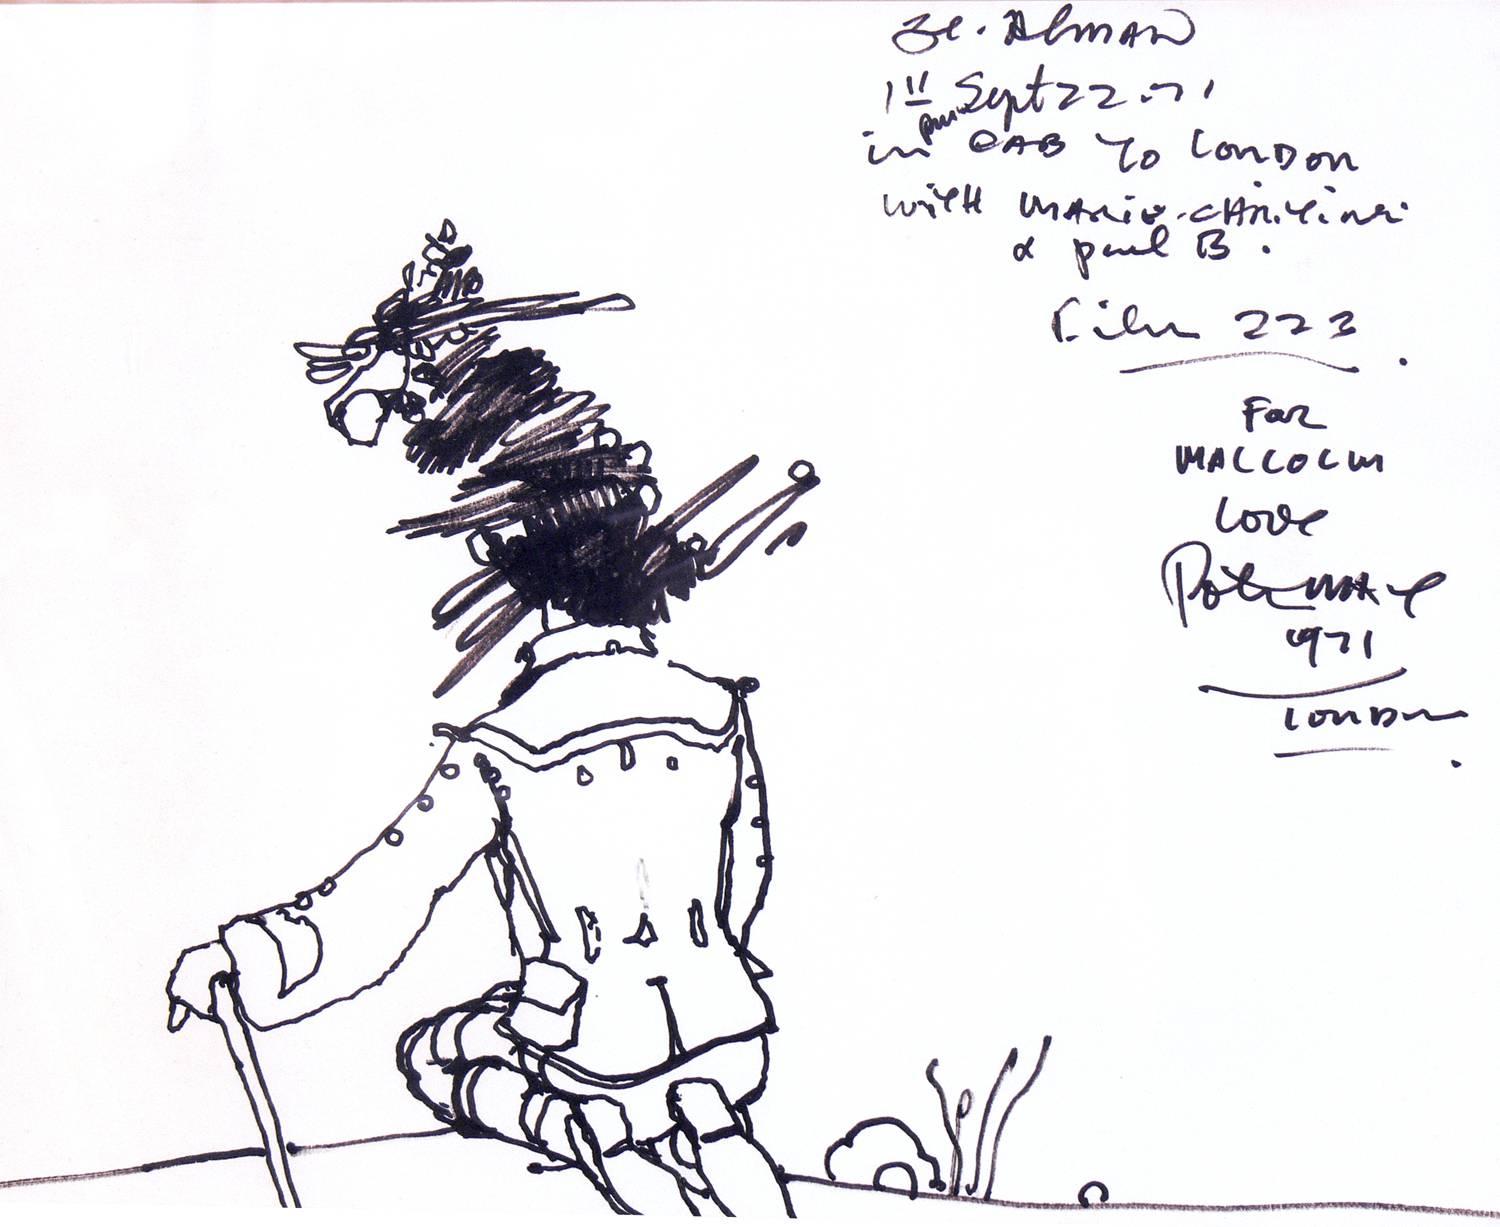 1 11 Sept 22.71
pm
in CAB To LONDON
with MARIO.
& paul B.
Film 223
For
MALCOLM
LOVE
Peter MAX
1971
LONDON